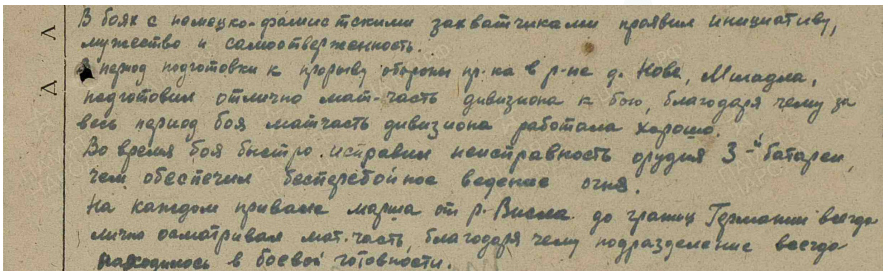 В боях с немецко-фашистскими захватчиками проявил инициативу,
мужество и самоотверженность.
В период подготовки к прорыву обороны пр-ка в р-не д. Нове, Мигадла,
подготовил отлично мат-часть дивизиона к бою, благодаря чему за
весь период боя матчасть дивизиона работала хорошо.
Во время боя быстро исправил неисправность орудия 3-й батареи,
чем обеспечил бесперебойное ведение огня.
На каждом привале марша от р. Висла до границ Германии всегда
лично осматривал мат.часть, благодаря чему подразделение всегда
находилось в боевой готовности.